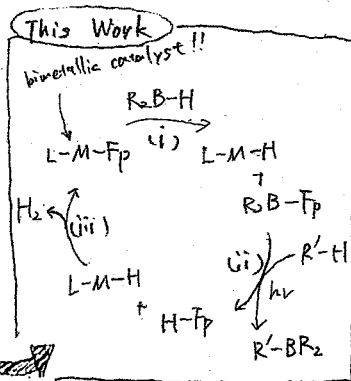 This Work
bimetallic catalyst!!
R₂B-H
L-M-Fp
(i)
L-M-H
+
R₂B-Fp
H₂
(iii)
(ii)
R'-H
hν
L-M-H
+
H-Fp
R'-BR₂